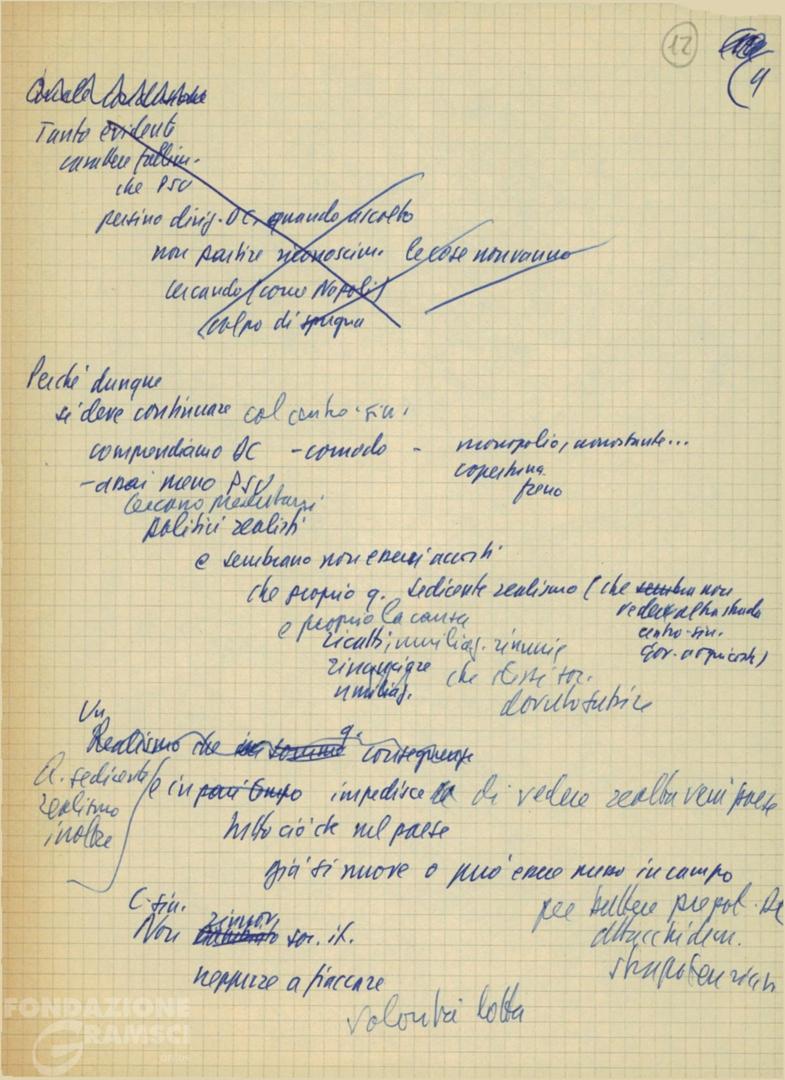 12
4
Tanto evidente
carattere fallim.
che PSU
persino dirig. DC, quando ascolto
non partire riconoscim. le cose non vanno
cercando (come Napoli)
colpo di spugna
Perché dunque
si deve continuare col centro-sin.
comprendiamo DC - comodo - monopolio, nonostante...
copertura
freno
- assai meno PSU
cercano
politici realisti
e sembrano non essersi accorti
che proprio q. sedicente realismo (che sembra non
vedere altra strada
centro-sin.
gov. a ogni costo)
è proprio la causa
ricatti, umiliaz. rinunie
rinunciare
umiliaz. che stessi soc.
dovuto subire
Un
Realismo che in somma q. conseguenze
Q. sedicente
realismo
inoltre
e in pari tempo impedisce di vedere realtà veri paese
tutto ciò che nel paese
già si muove o può essere messo in campo
per battere prepot. DC
attacchi dem.
C-sin.
Non rinnov. soc. it.
neppure a fiaccare
volontà lotta
FONDAZIONE
GRAMSCI